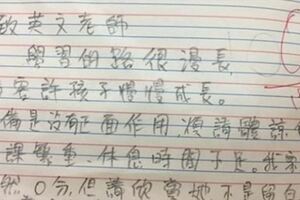 致英文老師
學習的路很漫長,
容許孩子慢慢成長。
備是沒有正面作用,煩請體諒
課繁重、休息時間不足。我家
然0分,但請欣賞她不是留白